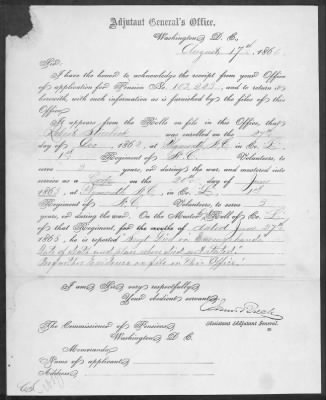 Adjutant General's Office,
Washington D. C.,
August 17th, 186
Sir:
I have the honor to acknowledge the receipt from your Office
of application for Pension No. 102,223, and to return it
herewith, with such information as is furnished by the files of this
Office.
It appears from the Rolls on file in this Office, that
was enrolled on the 27th
day of Dec 1862, at Plymouth N.C. in Co. L,
1st Regiment of N.C. Volunteers, to
serve 3 years, or during the war, and mustered into
service as a on the day of June
1863, at Plymouth N.C., in Co. L, 1st
Regiment of N.C. Volunteers, to serve 3
years, or during the war. On the Muster Roll of Co. L
of that Regiment, for the months of dated June 27th
1863, he is reported
Date of death and place when died not stated.
No further Evidence on file in this Office.
I am Sir, very respectfully,
Your obedient servant,
Assistant Adjutant General.
The Commissioner of Pensions,
Washington D. C.
Memoranda:
Name of applicant,
Address,